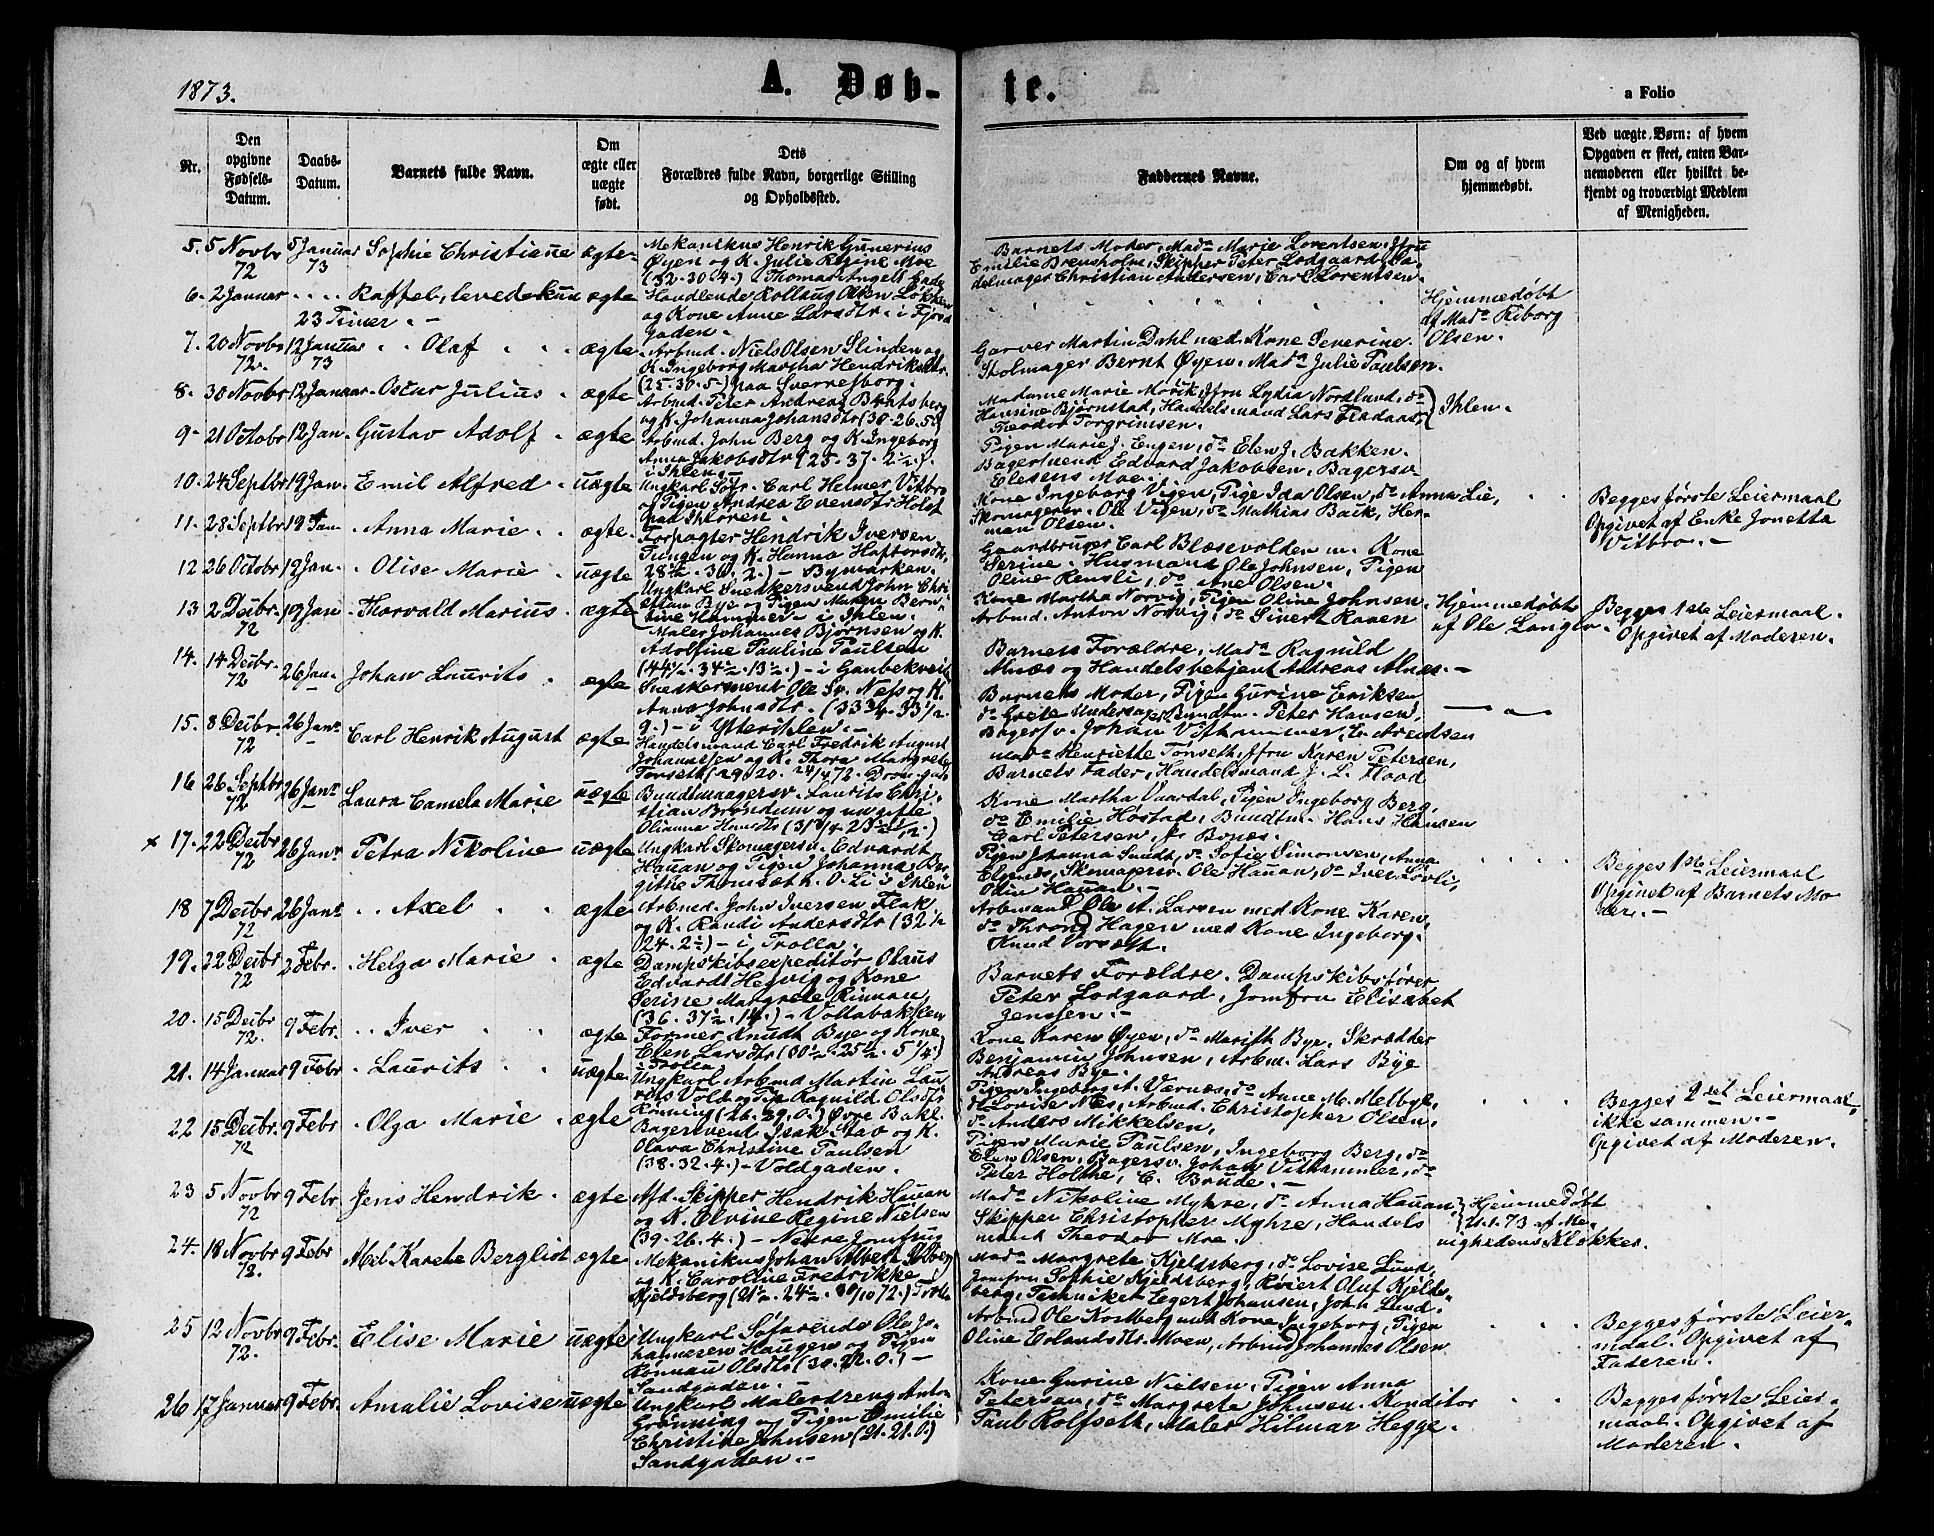 1873.
A. Døb-
te.
a Folio
Nr.
Den opgivne Fødsels-Datum.
Daabs-Datum.
Barnets fulde Navn.
Om ægte eller uægte født.
Dets Forældres fulde Navn, borgerlige Stilling og Opholdssted.
Faddernes Navne.
Om og af hvem hjemmedøbt.
Ved uægte Børn: af hvem Opgaven er skeet, enten Barnemoderen eller hvilket bekjendt og troværdigt Medlem af Menigheden.
5. 5 Novbr 72 5 Januar 73 Sophie Christiane ægte
Mekanikus Henrik Gunerius
Øyen og K. Julie Regine Moe
(32-30 4.) Thomas Angells Gade
Barnets Moder, Mad. Marie Lorentsen, Jfru
Emilie Brensholm, Skipper Peter Lodgaard, Sa-
delmager Christian Andersen, Carl Lorentsen
6. 2 Januar
23 Timer. -
Handlende Rollaug Olsen Løkken
og Kone Anne Larsdtr. i Fjord
gaden.
Hjemmedøbt
af Mad. Riborg
Olsen.
7. 20 Novbr 72. 12 Januar 73 Olaf ægte
Arbmd. Niels Olsen Slinden og
K. Ingeborg Martha Hendriksdtr.
(25-30-5) paa Sverresborg.
Garver Martin Dahl med Kone Severine.
Stolmager Bernt Øyen. Mad. Julie Paulsen.
8. 30 Novbr 12 Januar Oscar Julius ægte
Arbmd. Peter Andreas Berntsberg
og K. Johanna Johansdtr (30-26.5)
Madame Marie Mørik, Jfru Lydia Nordlund, do
Hansine Bjørnstad, Handelsmand Lars Fladaas,
Theodor Torgrimsen.
Ihlen.
9. 21 Octobr 12 Jan. Gustav Adolf ægte
Arbmd. John Berg og K. Ingeborg
Anna Jakobsdtr (25-37. 2½.)
i Ihlen.
Pigen Marie J. Engen, do Elen J. Bakken.
Bagersvend Edvard Jakobsen, Bagersv
Elesens Moe.
10. 24 Septbr 19 Jan. Emil Alfred uægte
Ungkarl Søfr. Carl Heimer Vitbro
og Pigen Andrea Evensdtr Holst
paa Støren.
Kone Ingeborg Vigen, Pige Ida Olsen, do Anna Lie,
Skomagersv. Ole Vigen, do Mathias Baik, Her-
man Olsen.
Begges første Leiermaal
Opgivet af Enke Jonetta
Vitbro. -
11. 28 Septbr 19 Jan Anna Marie ægte
Forpagter Hendrik Iversen
Tungen og K. Hanna Haftorsdtr.
28½. 30. 2.) - Bymarken.
Gaardbruger Carl Blæsevolden m. Kone
Serine. Husmand Ole Johnsen, Pigen
Oline Rensli, do Ane Olsen.
12 26 Octobr 19 Jan. Olise Marie uægte
Ungkarl Snedkersvend John Chri
stian Bye og Pigen Maren Bern-
tine Hammer - i Ihlen.
Kone Martha Norvig, Pigen Oline Johnsen
Arbmd. Anton Norvig, do Sivert Raaen
Hjemmedøbt
af Ole Langlo
Begges 1ste Leiermaal.
Opgivet af Moderen.
13 2 Decbr 72 19 Jan Thorvald Marius ægte
Maler Johannes Bjørnsen og K.
Adolfine Pauline Paulsen
(44½. 34½. 13½.) - i Gaubekveiten
Barnets Forældre, Mad. Ragnild
Alnæs og Handelsbetjent Andreas Alnæs. -
14. 14 Decbr. 72 26 Jan. Johan Laurits ægte
Snedkersvent Ole Sv. Næss og K.
Anna Johnsdtr. (33¾. 33½.
9.) - i Ytter Ihlen. -
Barnets Moder, Pigen Gurine Eriksen
do Grete Undersager, Bundtm. Peter Hansen,
15. 8 Decbr. 72 26 Jan. Carl Henrik August ægte
Handelsmand Carl Fredrik August
Johannesen og K. Thora Margrete
Tønseth
Bagersv. Johan Vithammer, E. Arentsen
Mad. Henriette Tønseth, Jfru Karen Petersen,
Barnets Fader, Handelsmand J. L. Flood
16 26 Septbr 72 26 Jan. Laura Camela Marie uægte
Bundtmagersv. Laurits Chri-
stian Brøndum og ugifte
Olianna
Kone Martha Vaardal, Pigen Ingeborg Berg,
do Emilie Høstad, Bundtm. Hans Hansen
Carl Petersen, Bonæs.
× 17. 22 Decbr 72 26 Jan. Petra Nikoline uægte
Ungkarl Skomagersv. Edvardt
Hauan og Pigen Johanna Bir-
gitte Thomsæth. O. Li i Ihlen
Pigen Johanna Smidt, do Sofie Simonsen, Anna
Elgenes, Skomagersv. Ole Hauan, do Iver Løvli,
Odin Hauan. -
Begges 1ste Leiermaal
Opgivet af Barnets Mo
der. -
18 7 Decbr 72 26 Jan. Axel ægte
Arbmd. John Iversen Flak
og K. Randi Andersdtr (32½
24. 2½) - i Trolla.
Arbmand Ole A. Larsen med Kone Karen,
do Thrond Hagen med Kone Ingeborg.
Knud Vorsæth.
19. 22 Decbr 72 2 Febr. Helga Marie ægte
Dampskibsexpeditør Olaus
Edvardt Hegvig og Kone
Serine Margrete Rinnan
(36. 37½. 14.) - Vollabakken
Barnets Forældre. Dampskibsfører
Peter Lodgaard, Jomfru Elisabet
Jenssen. -
20. 15 Decbr 72. 9 Febr. Iver ægte
Former Knudt Bye og Kone
Elen Larsdtr (30½. 25½. 5¼.)
Trolla
Kone Karen Øyen, do Marith Bye, Skrædder
Benjamin Johnsen, Arbm. Lars Bye
Andreas Bye.
21. 14 Januar 9 Febr Laurits uægte
Ungkarl Arbmd Martin Lau-
rits Vold og Pige Ragnild Olsdtr
Rønning (26. 29. 0.) Øvre Bakl.
Pigen Ingeborg A. Værnæs, do Anne M. Melbye,
do Lovise Næs, Arbmd. Christopher Olsen,
do Anders Mikkelsen,
Begges 2det Leiermaal,
ikke sammen. -
Opgivet af Moderen.
22 15 Decbr. 72 9 Febr Olga Marie ægte
Bagersvend Isak Stav og K.
Olava Christine Paulsen
(38. 32. 4.) - Voldgaden.
Pigen Marie Paulsen, Ingeborg Berg, do
Elen Olsen, Bagersv. Johan Vithammer, do
Peter Holthe, C. Brude. -
23 5 Novbr 72 9 Febr Jens Hendrik ægte
Afd. Skipper Hendrik Hauan
og K. Elvine Regine Nielsen
(39. 26. 4.) - Nedre Jomfrug
Mad. Nikoline Myhre, do Anna Hauan,
Skipper Christopher Myhre, Handels
mand Theodor Moe.
Hjemmedøbt
21.1.73 af Me-
nighedens Klokker.
24. 18 Novbr 72. 9 Febr Mel. Karete Bergliot ægte
Mekanikus Johan Albert
og K. Caroline Fredrikke
Kjeldsberg (21½. 24½. 72.) Trolla
Mad. Margrete Kjeldsberg, do Lovise Lund,
Jomfru Sophie Kjeldsberg, Rciert Oluf Kjelds-
berg, Tekniker Egert Johansen, John Lund.
25 12 Novbr 72. 9 Febr. Elise Marie uægte
Ungkarl Søfarende Ole Jo-
hannesen Haugen og Pigen
Rønnau Olsdtr (30. 22. 0.) -
Sandgaden. -
Arbmd Ole Kostberg med Kone Ingeborg, Pigen
Oline Erlandsdtr. Moen, Arbmd Johannes Olsen
Begges første Leier-
maal. Opgivet af
Faderen.
26 17 Januar 9 Febr. Amalie Lovise uægte
Ungkarl Malerdreng Anton
Grønning og Pigen Emilie
Christine Johnsen (21. 21. 0.)
Sandgaden. -
Kone Gurine Nielsen. Pigen Anna
Petersen, do Margrete Johnsen. Konditor
Paul Rolfseth, Maler Hilmar Hegge.
Begges første Leier-
maal. Opgivet af
Moderen.